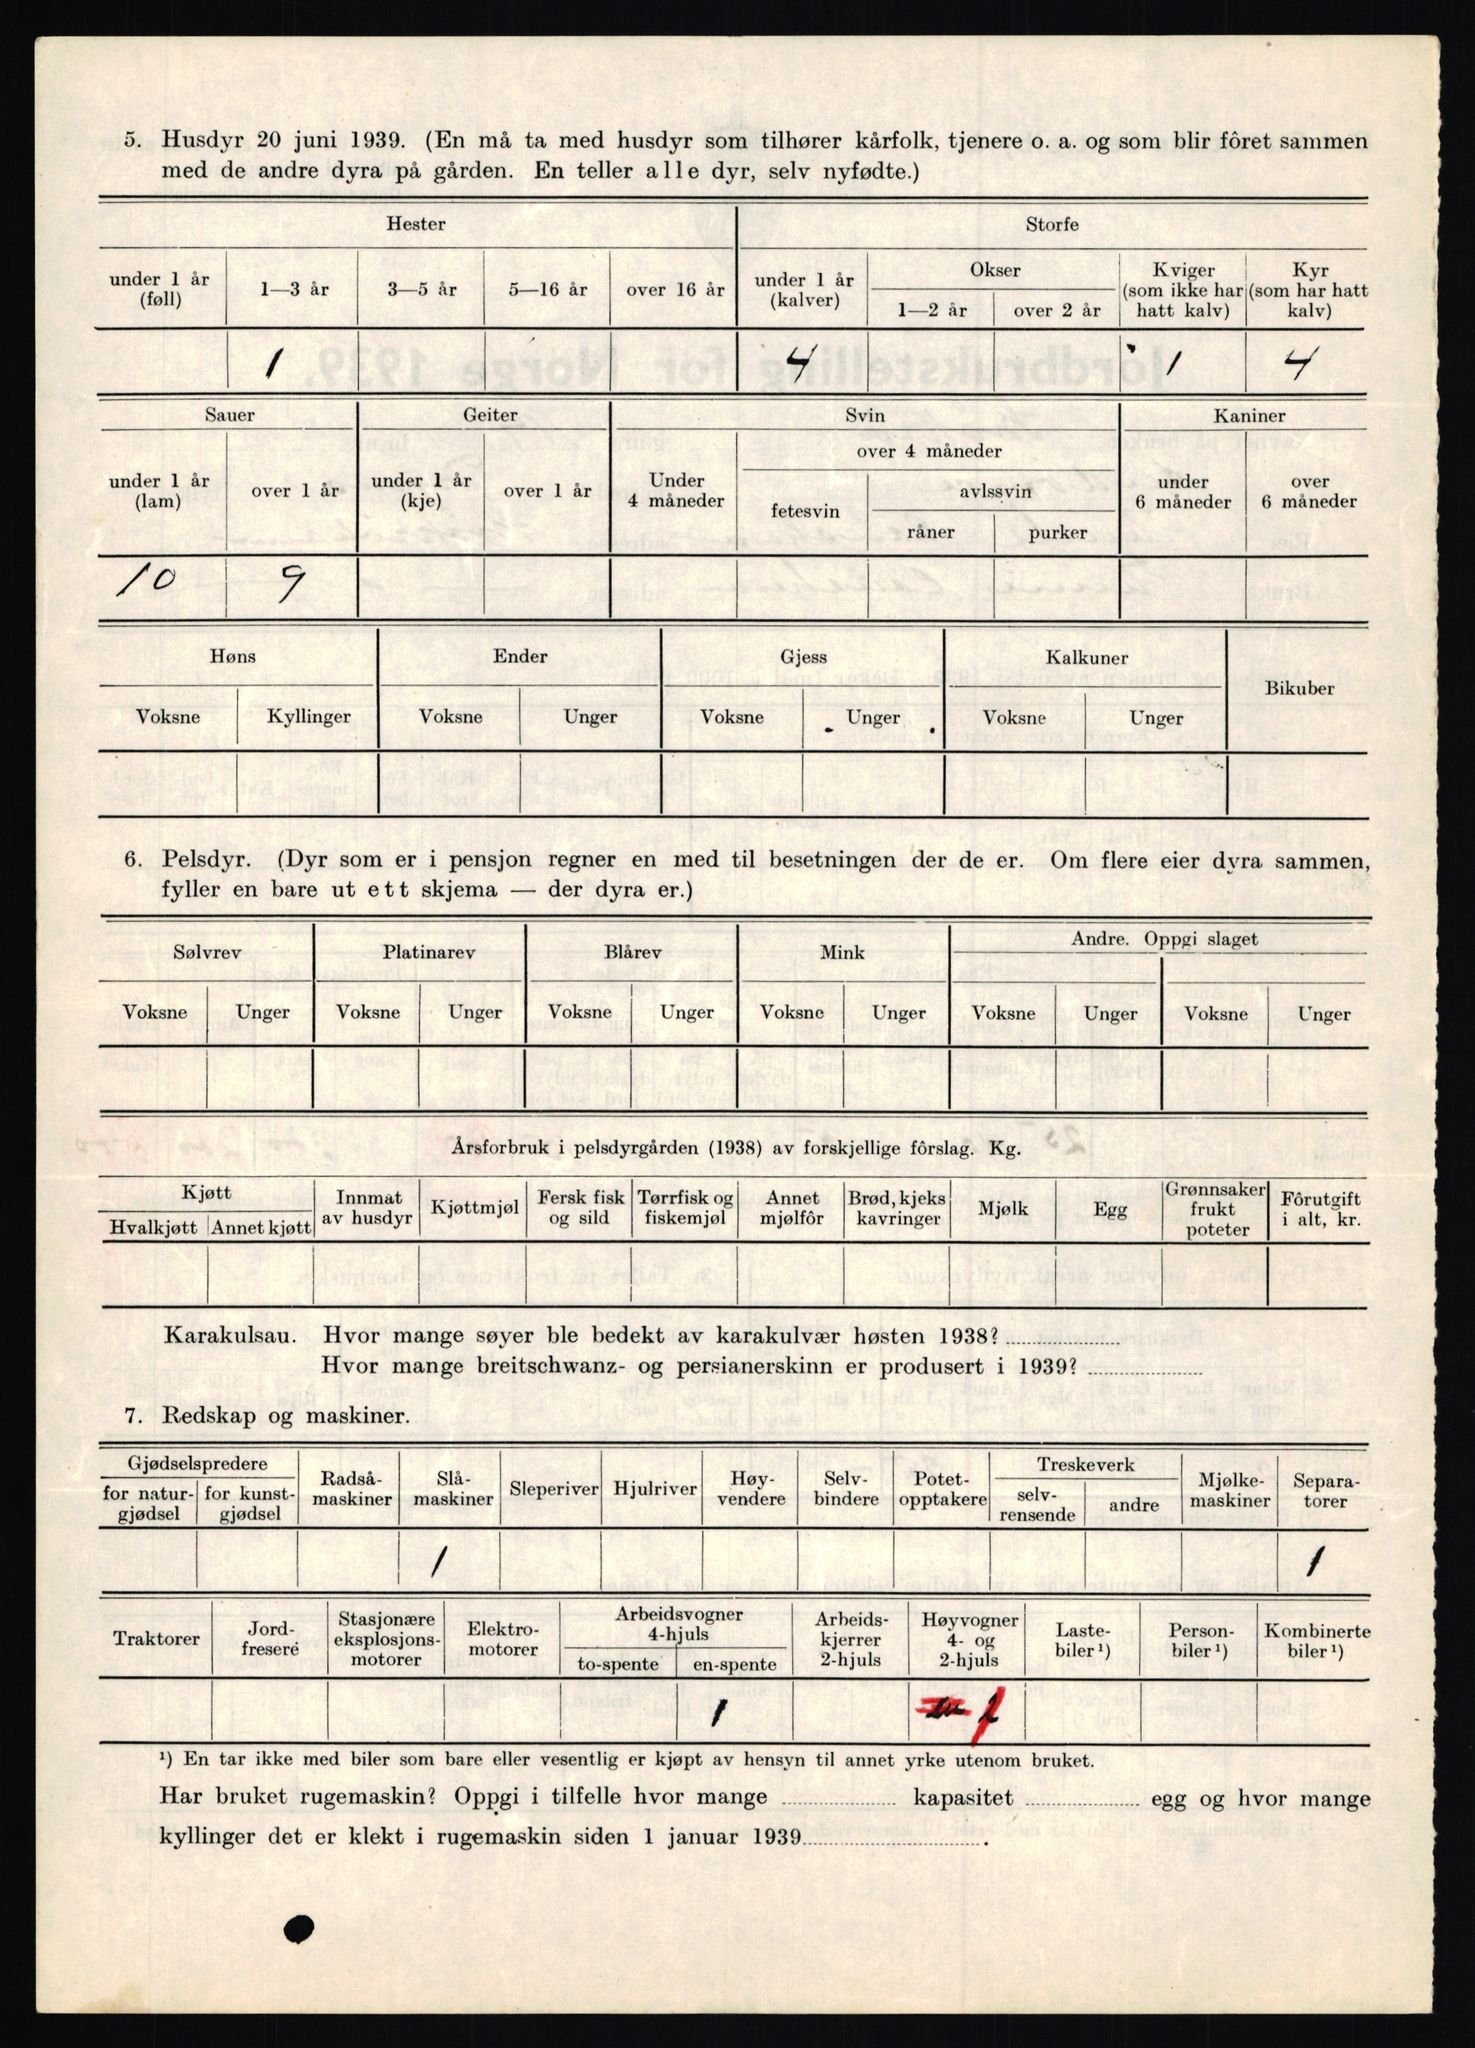 5. Husdyr 20 juni 1939. (En må ta med husdyr som tilhører kårfolk, tjenere o. a. og som blir fôret sammen
med de andre dyra på gården. En teller alle dyr, selv nyfødte.)
Hester Storfe
under 1 år (føll) 1—3 år 3—5 år 5—16 år over 16 år under 1 år (kalver) Okser 1—2 år over 2 år Kviger (som ikke har hatt kalv) Kyr (som har hatt kalv)
1 4 1 4
Sauer Geiter Svin Kaniner
under 1 år (lam) over 1 år under 1 år (kje) over 1 år Under 4 måneder over 4 måneder fetesvin avlssvin råner purker under 6 måneder over 6 måneder
10 9
Høns Ender Gjess Kalkuner Bikuber
Voksne Kyllinger Voksne Unger Voksne Unger Voksne Unger
6. Pelsdyr. (Dyr som er i pensjon regner en med til besetningen der de er. Om flere eier dyra sammen,
fyller en bare ut ett skjema — der dyra er.)
Sølvrev Platinarev Blårev Mink Andre. Oppgi slaget
Voksne Unger Voksne Unger Voksne Unger Voksne Unger Voksne Unger Voksne Unger
Årsforbruk i pelsdyrgården (1938) av forskjellige fôrslag. Kg.
Kjøtt Hvalkjøtt Annet kjøtt Innmat av husdyr Kjøttmjøl Fersk fisk og sild Tørrfisk og fiskemjøl Annet mjølfôr Brød, kjeks kavringer Mjølk Egg Grønnsaker frukt poteter Fôrutgift i alt, kr.
Karakulsau. Hvor mange søyer ble bedekt av karakulvær høsten 1938?
Hvor mange breitschwanz- og persianerskinn er produsert i 1939?
7. Redskap og maskiner.
Gjødselspredere for natur-gjødsel for kunst-gjødsel Radså-maskiner Slå-maskiner Sleperiver Hjulriver Høy-vendere Selv-bindere Potet-opptakere Treskeverk selv-rensende andre Mjølke-maskiner Separa-torer
1 1
Traktorer Jord-fresere Stasjonære eksplosjons-motorer Elektro-motorer Arbeidsvogner 4-hjuls to-spente en-spente Arbeids-kjerrer 2-hjuls Høyvogner 4- og 2-hjuls Laste-biler ¹) Person-biler ¹) Kombinerte biler ¹)
1 2
¹) En tar ikke med biler som bare eller vesentlig er kjøpt av hensyn til annet yrke utenom bruket.
Har bruket rugemaskin? Oppgi i tilfelle hvor mange kapasitet egg og hvor mange
kyllinger det er klekt i rugemaskin siden 1 januar 1939 .